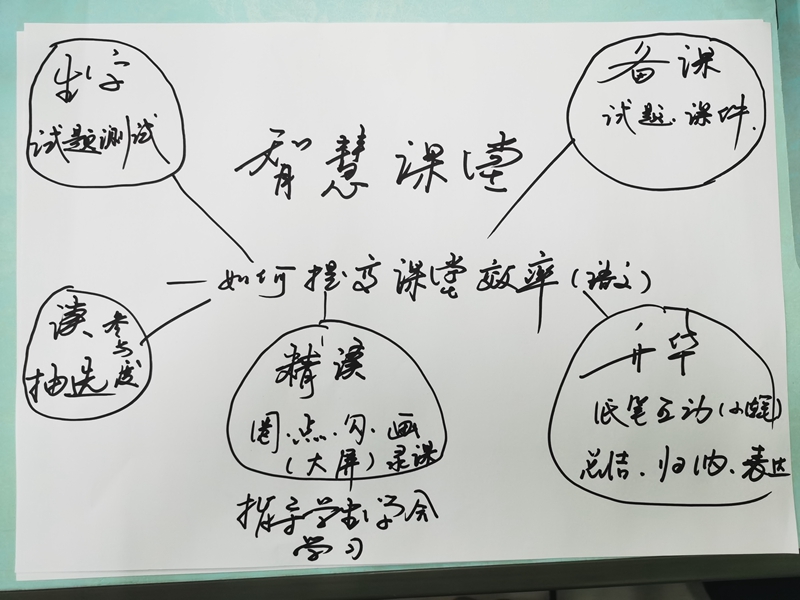 生字
试题测试
备课
试题.课件.
智慧课堂
—如何提高课堂效率(语文)
读
抽选
参与度
精读
圈.点.勾.画
(大屏)录课
指导学生学会
学习
升华
纸笔互动(小组)
总结.归纳.表达